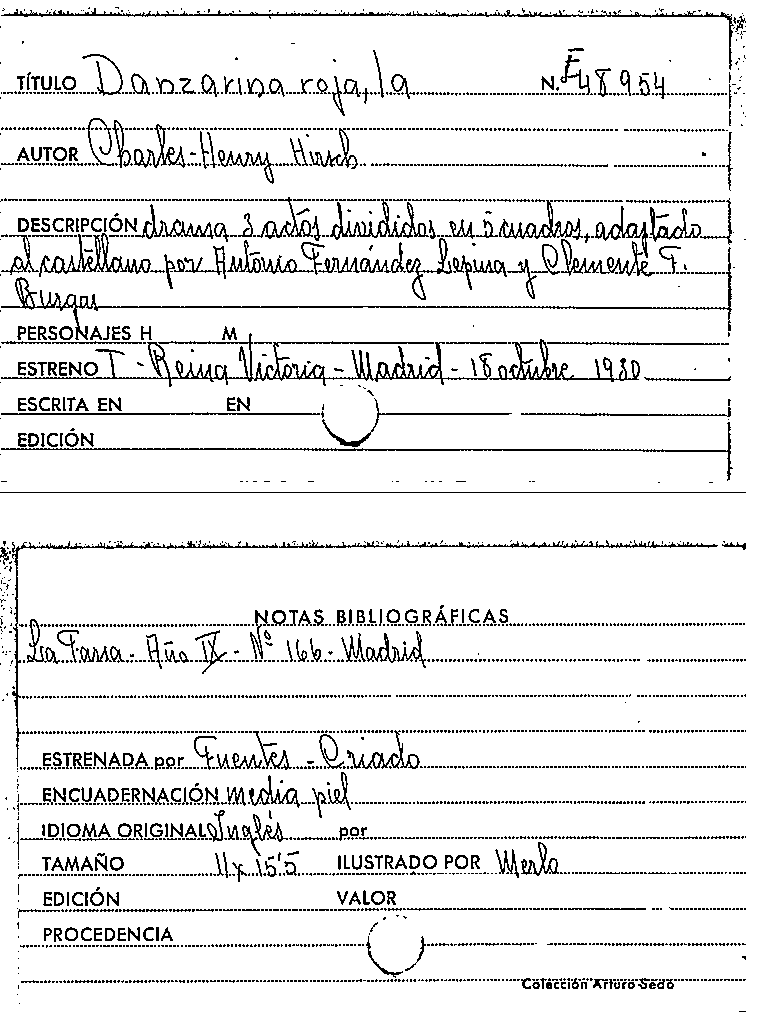 TÍTULO Danzarina roja, la N. E 48954
AUTOR Charles-Henry Hirsch
DESCRIPCIÓN drama 3 actos divididos en 5 cuadros, adaptado
al castellano por Antonio Fernández Lepina y Clemente F.
Burgos
PERSONAJES H M
ESTRENO T - Reina Victoria - Madrid - 18 octubre 1930
ESCRITA EN EN
EDICIÓN
NOTAS BIBLIOGRÁFICAS
La Farsa - Año IX - Nº 166 - Madrid
ESTRENADA por Fuentes - Criado
ENCUADERNACIÓN media piel
IDIOMA ORIGINAL Inglés por
TAMAÑO 11 x 15'5 ILUSTRADO POR Merlo
EDICIÓN VALOR
PROCEDENCIA
Colección Arturo Sedó